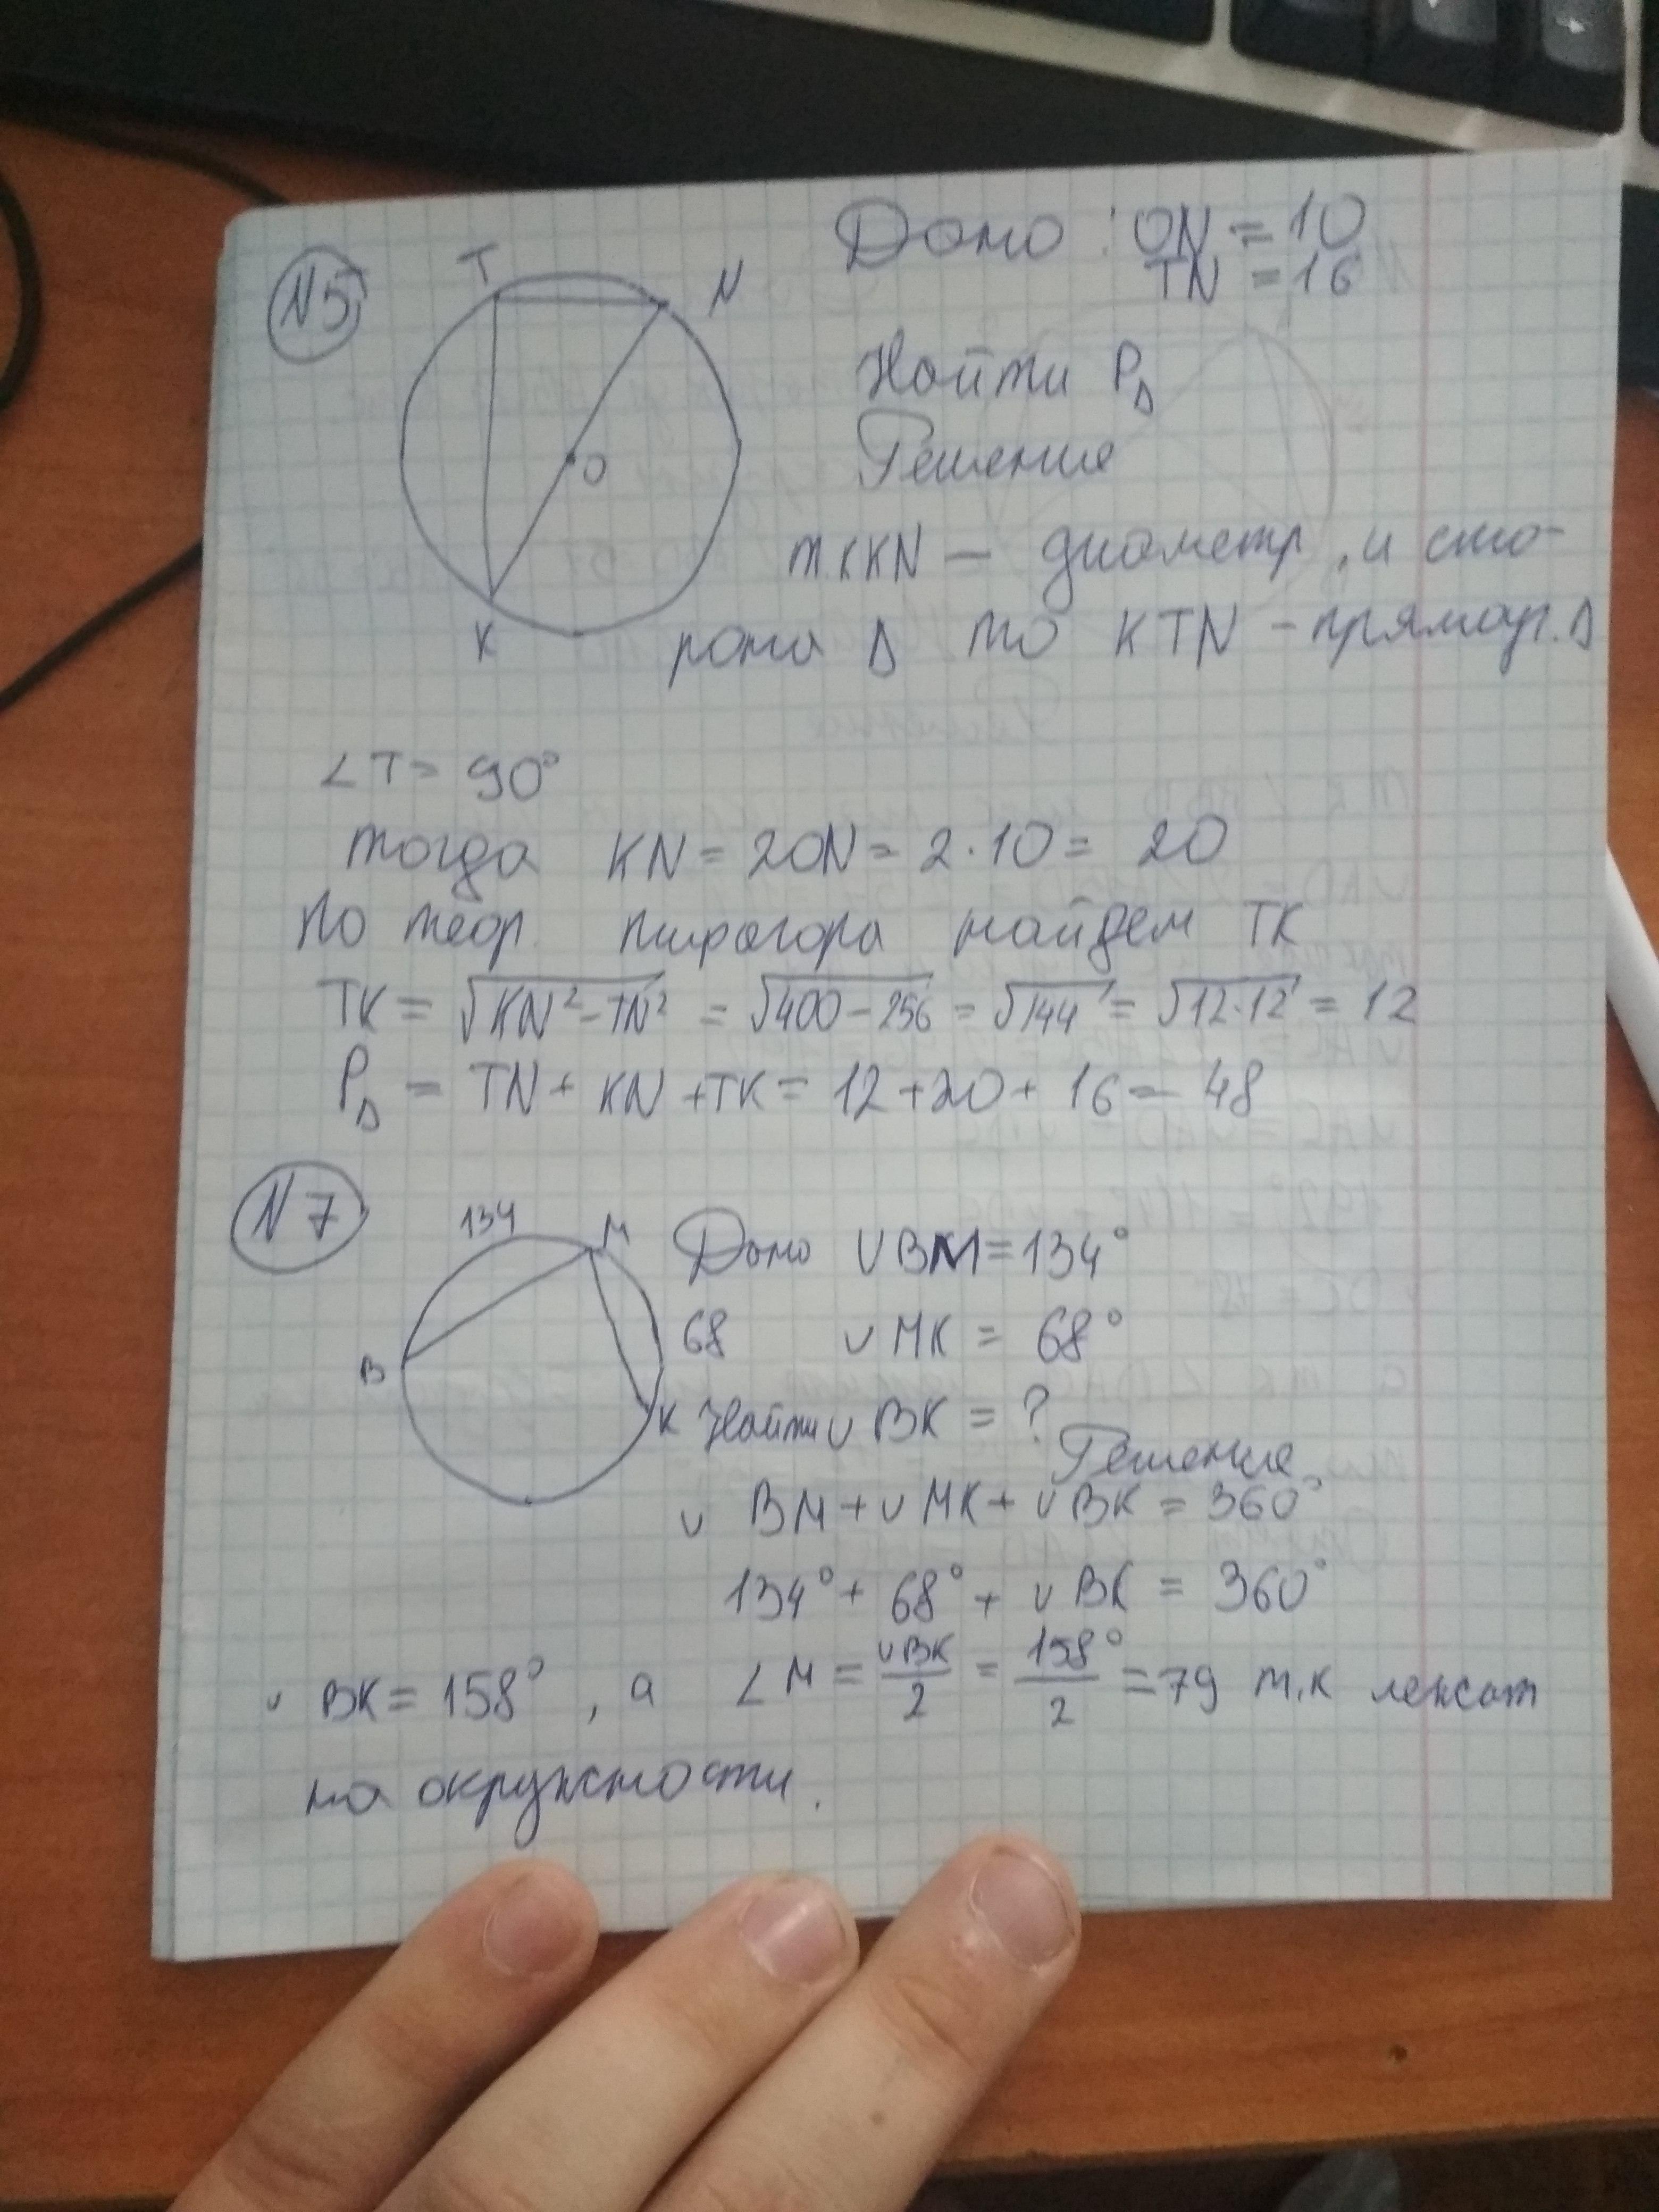 N5
T
N
O
K
Дано: ON = 10
TN = 16
Найти P∆
Решение
т.к KN — диаметр, и сто-
рона ∆ то KTN - прямоуг. ∆
∠T = 90°
тогда KN = 2ON = 2·10 = 20
По теор. пифагора найдем TK
TK = √KN²-TN² = √400-256 = √144 = √12·12 = 12
P∆ = TN + KN + TK = 12 + 20 + 16 = 48
N7
134
M
B
68
K
Дано ∪BM = 134°
∪MK = 68°
Найти ∪BK = ?
Решение
∪BM + ∪MK + ∪BK = 360°
134° + 68° + ∪BK = 360°
∪BK = 158°, а ∠M = ∪BK/2 = 158°/2 = 79 т.к лежат
на окружности.